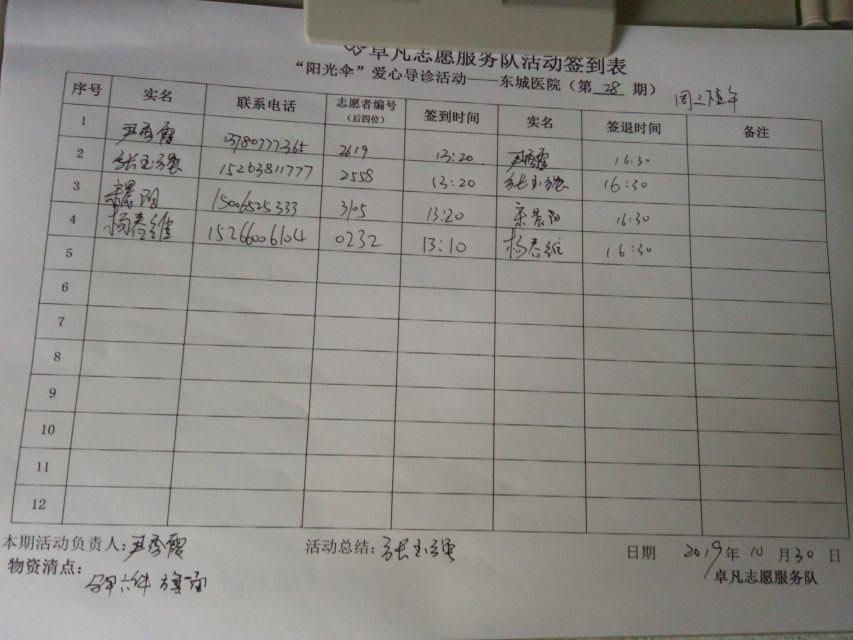 卓凡志愿服务队活动签到表
“阳光伞”爱心导诊活动——东城医院（第 28 期） 周三下午
序号 实名 联系电话 志愿者编号（后四位） 签到时间 实名 签退时间 备注
1 尹秀霞 13780777365 2619 13:20 尹秀霞 16:30
2 张玉强 15263811777 2558 13:20 张玉强 16:30
3 15006525333 3105 13:20 16:30
4 杨春维 15266006104 0232 13:10 杨春维 16:30
5
6
7
8
9
10
11
12
本期活动负责人：尹秀霞 活动总结：张玉强 日期 2019年 10 月 30 日
物资清点： 马甲六件
卓凡志愿服务队